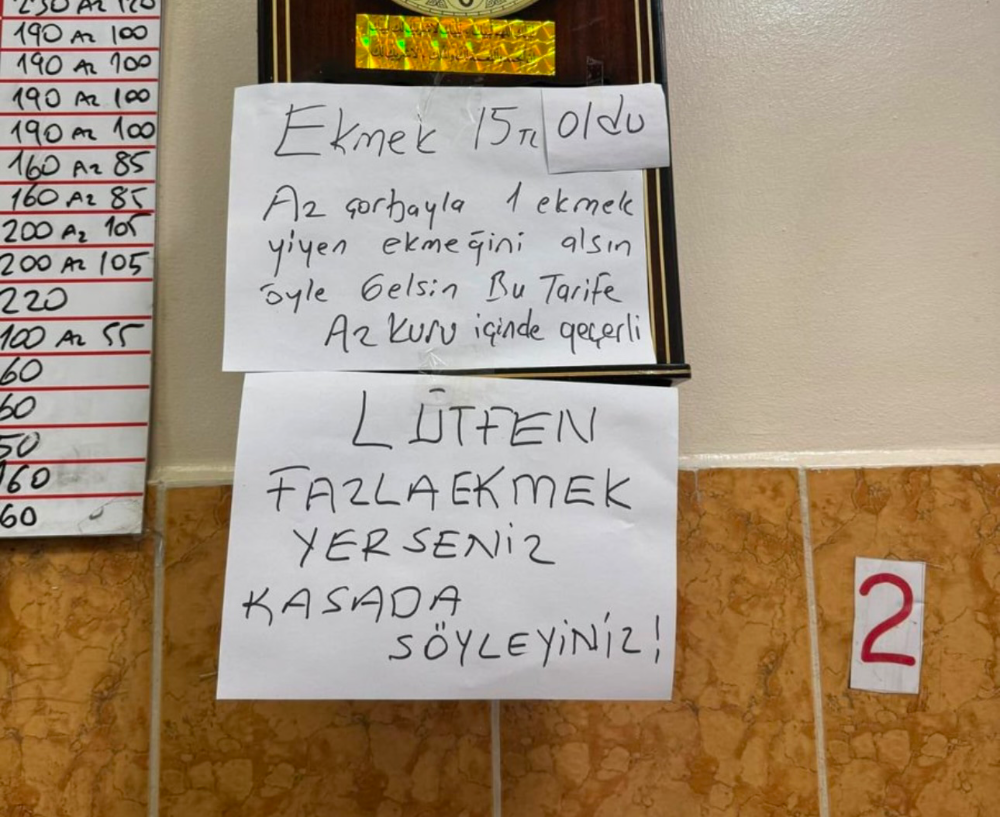 190 Az 100
190 Az 100
190 Az 100
190 Az 100
160 Az 85
160 Az 85
200 Az 105
200 Az 105
220
100 Az 55
60
60
50
160
60
Ekmek 15 TL oldu
Az çorbayla 1 ekmek
yiyen ekmeğini alsın
öyle Gelsin Bu Tarife
Az Kuru içinde geçerli
LÜTFEN
FAZLA EKMEK
YERSENİZ
KASADA
SÖYLEYİNİZ!
2